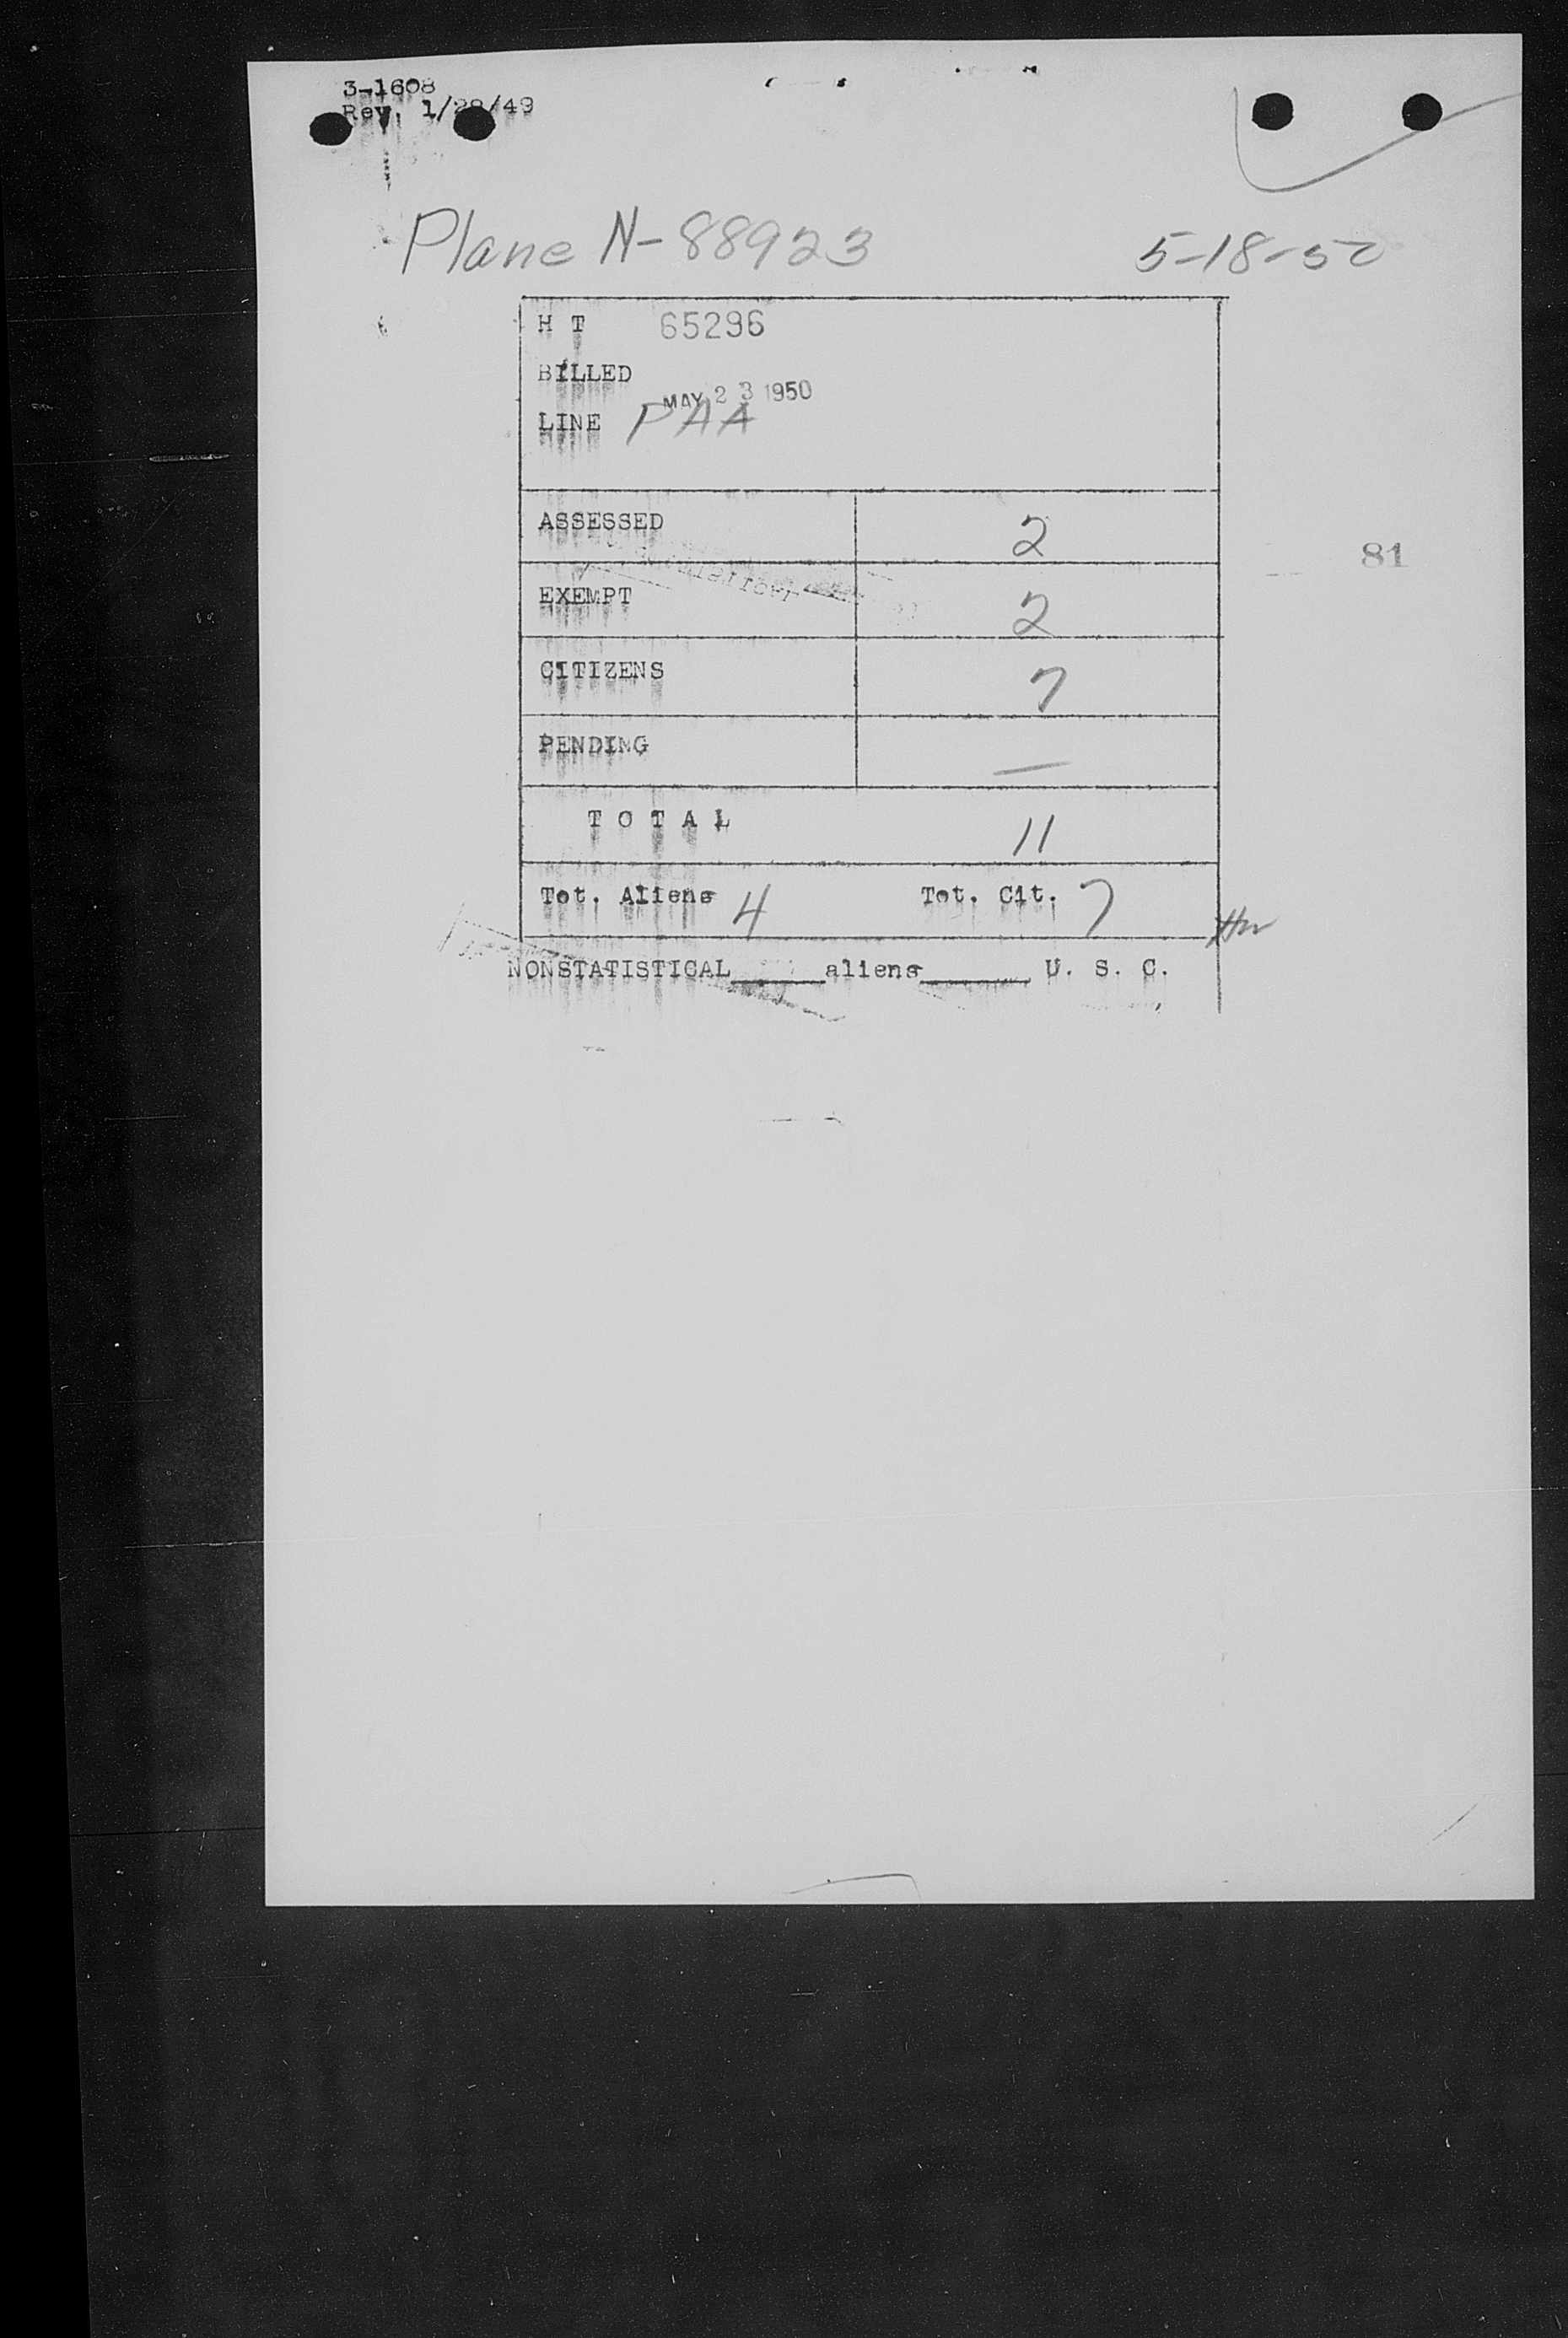 3-1608
Rev. 1/28/49
Plane N-88923 5-18-50
H T 65296
BILLED MAY 23 1950
LINE PAA
ASSESSED 2
81
EXEMPT 2
CITIZENS 7
PENDING —
T O T A L 11
Tot. Aliens 4 Tot. Cit. 7
NONSTATISTICAL______aliens_______ U. S. C.